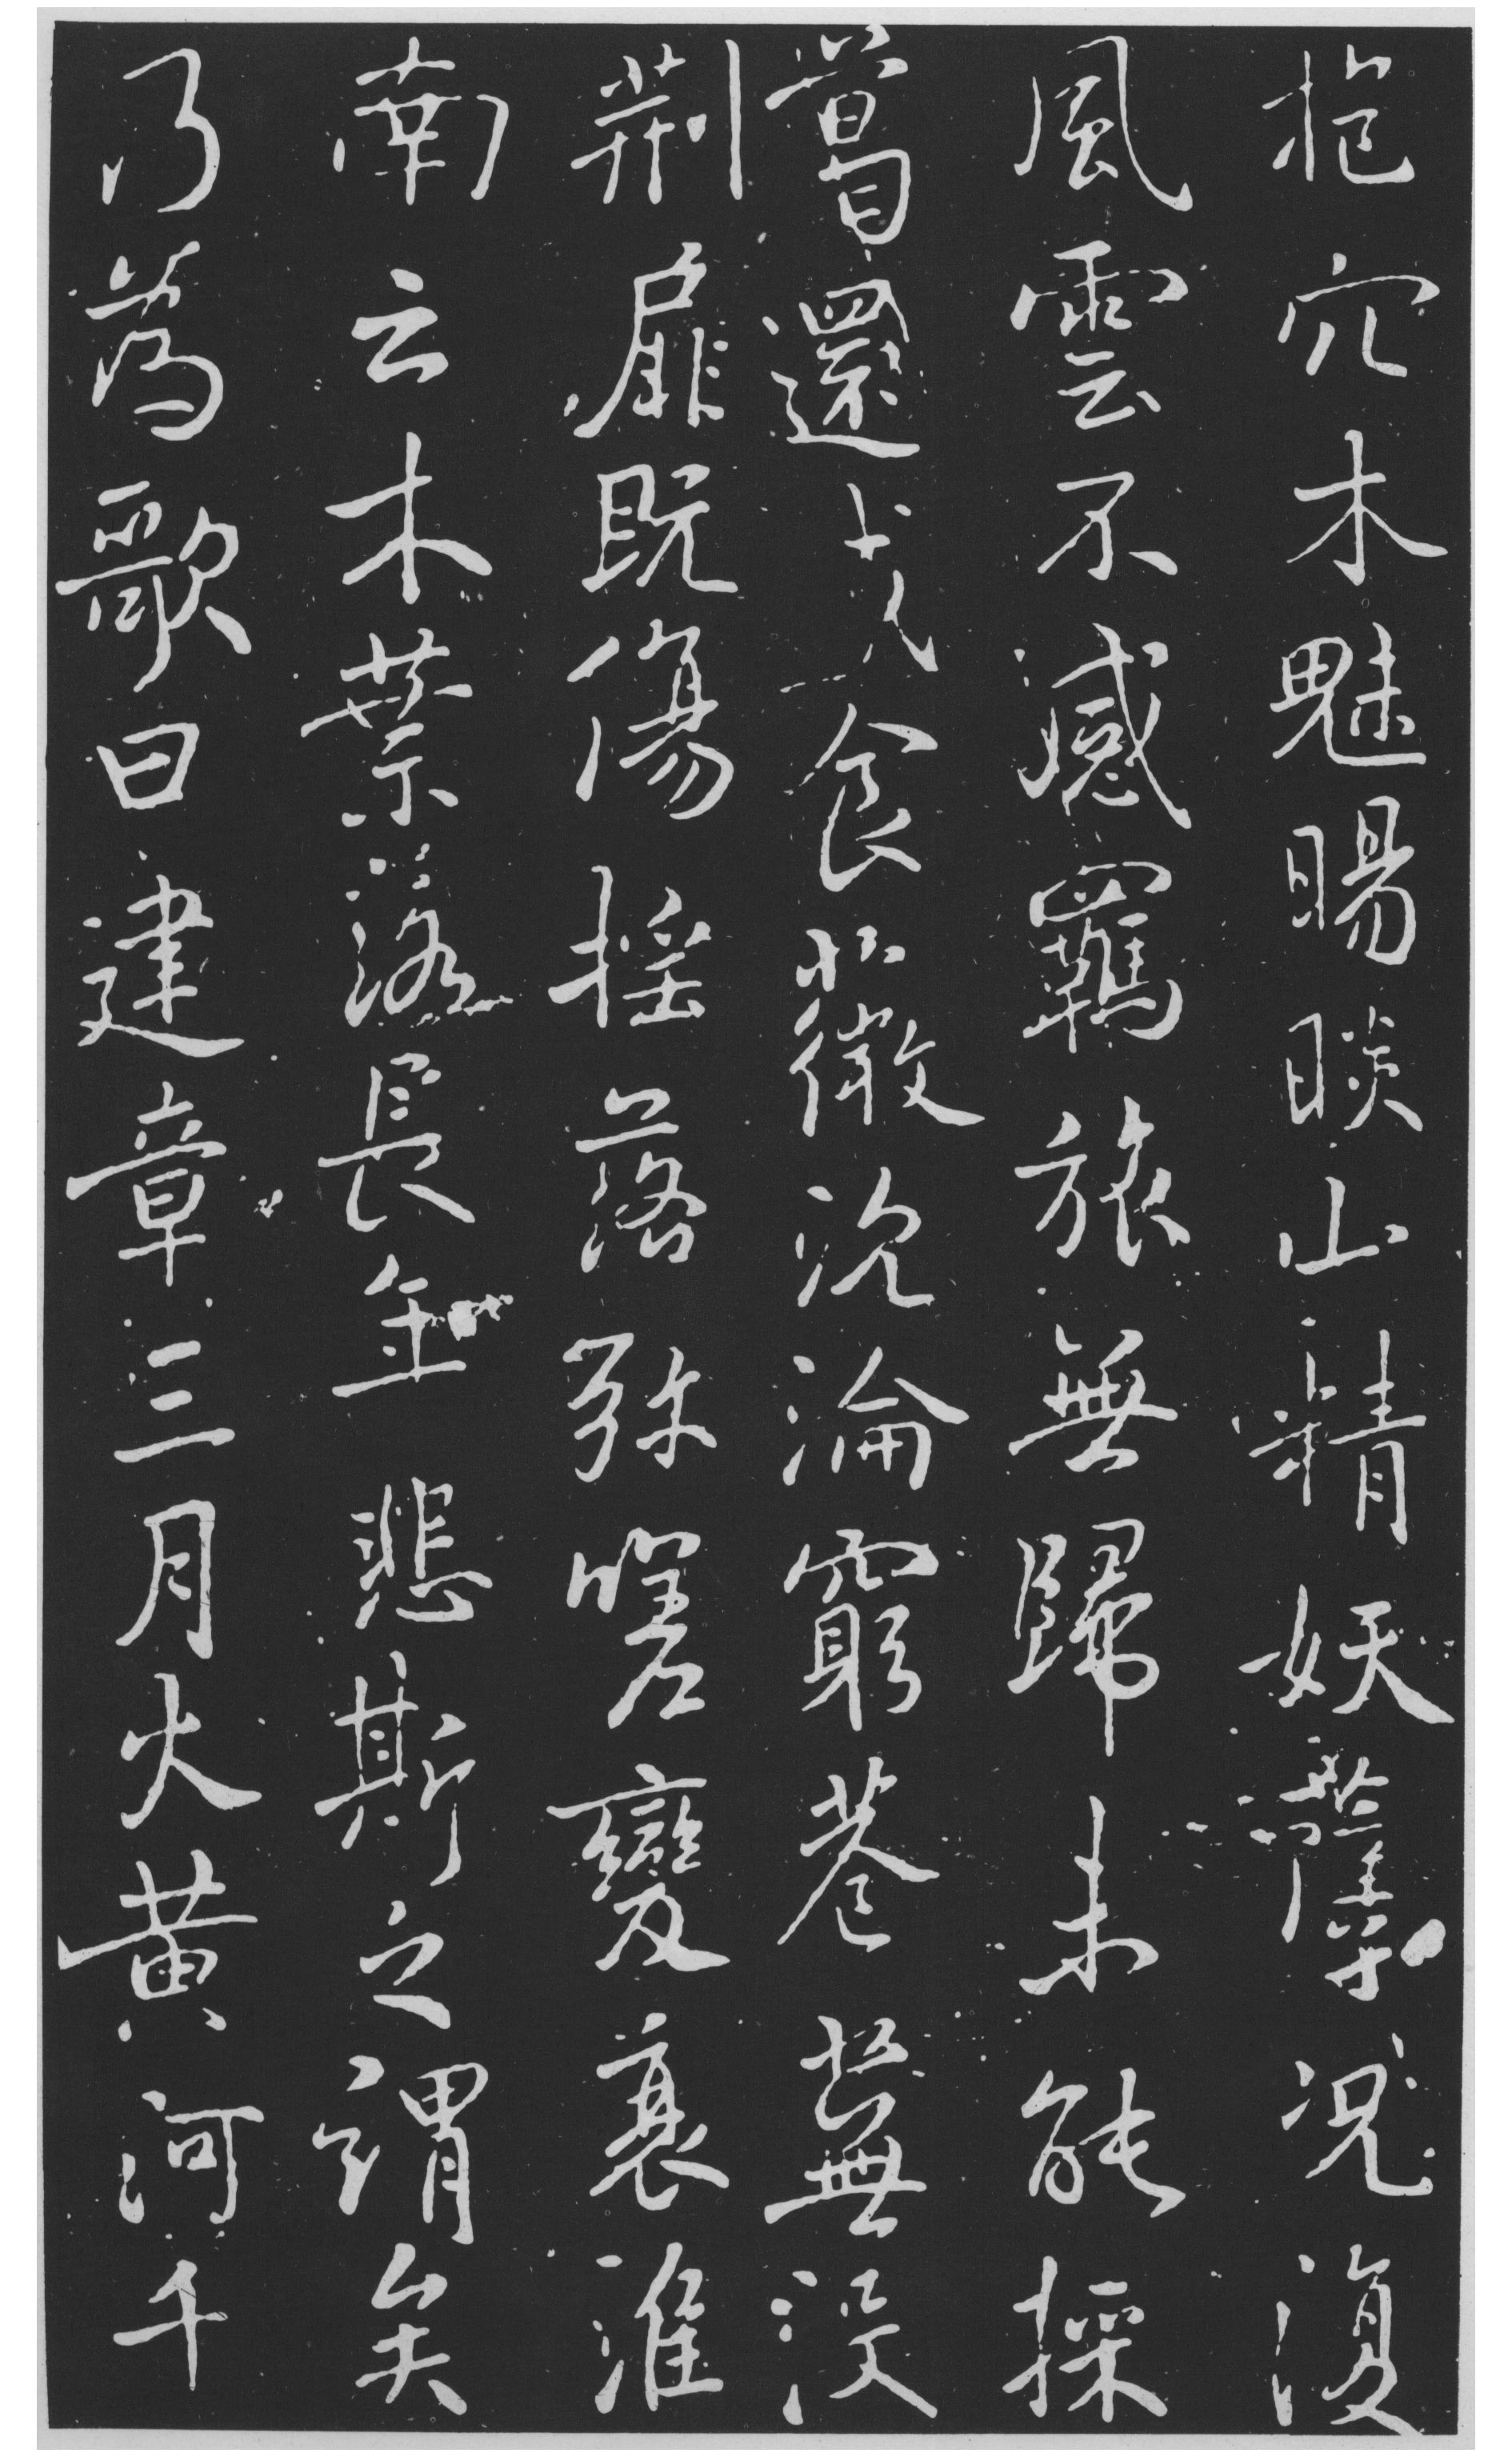 抱穴木魅暘睒山精妖孽況復
風雲不感羈旅無歸未能採
葛還成食薇沉淪窮巷蕪没
荆扉既傷摇落弥嗟變衰淮
南云木葉落長年悲斯之謂矣
乃為歌曰建章三月火黄河千